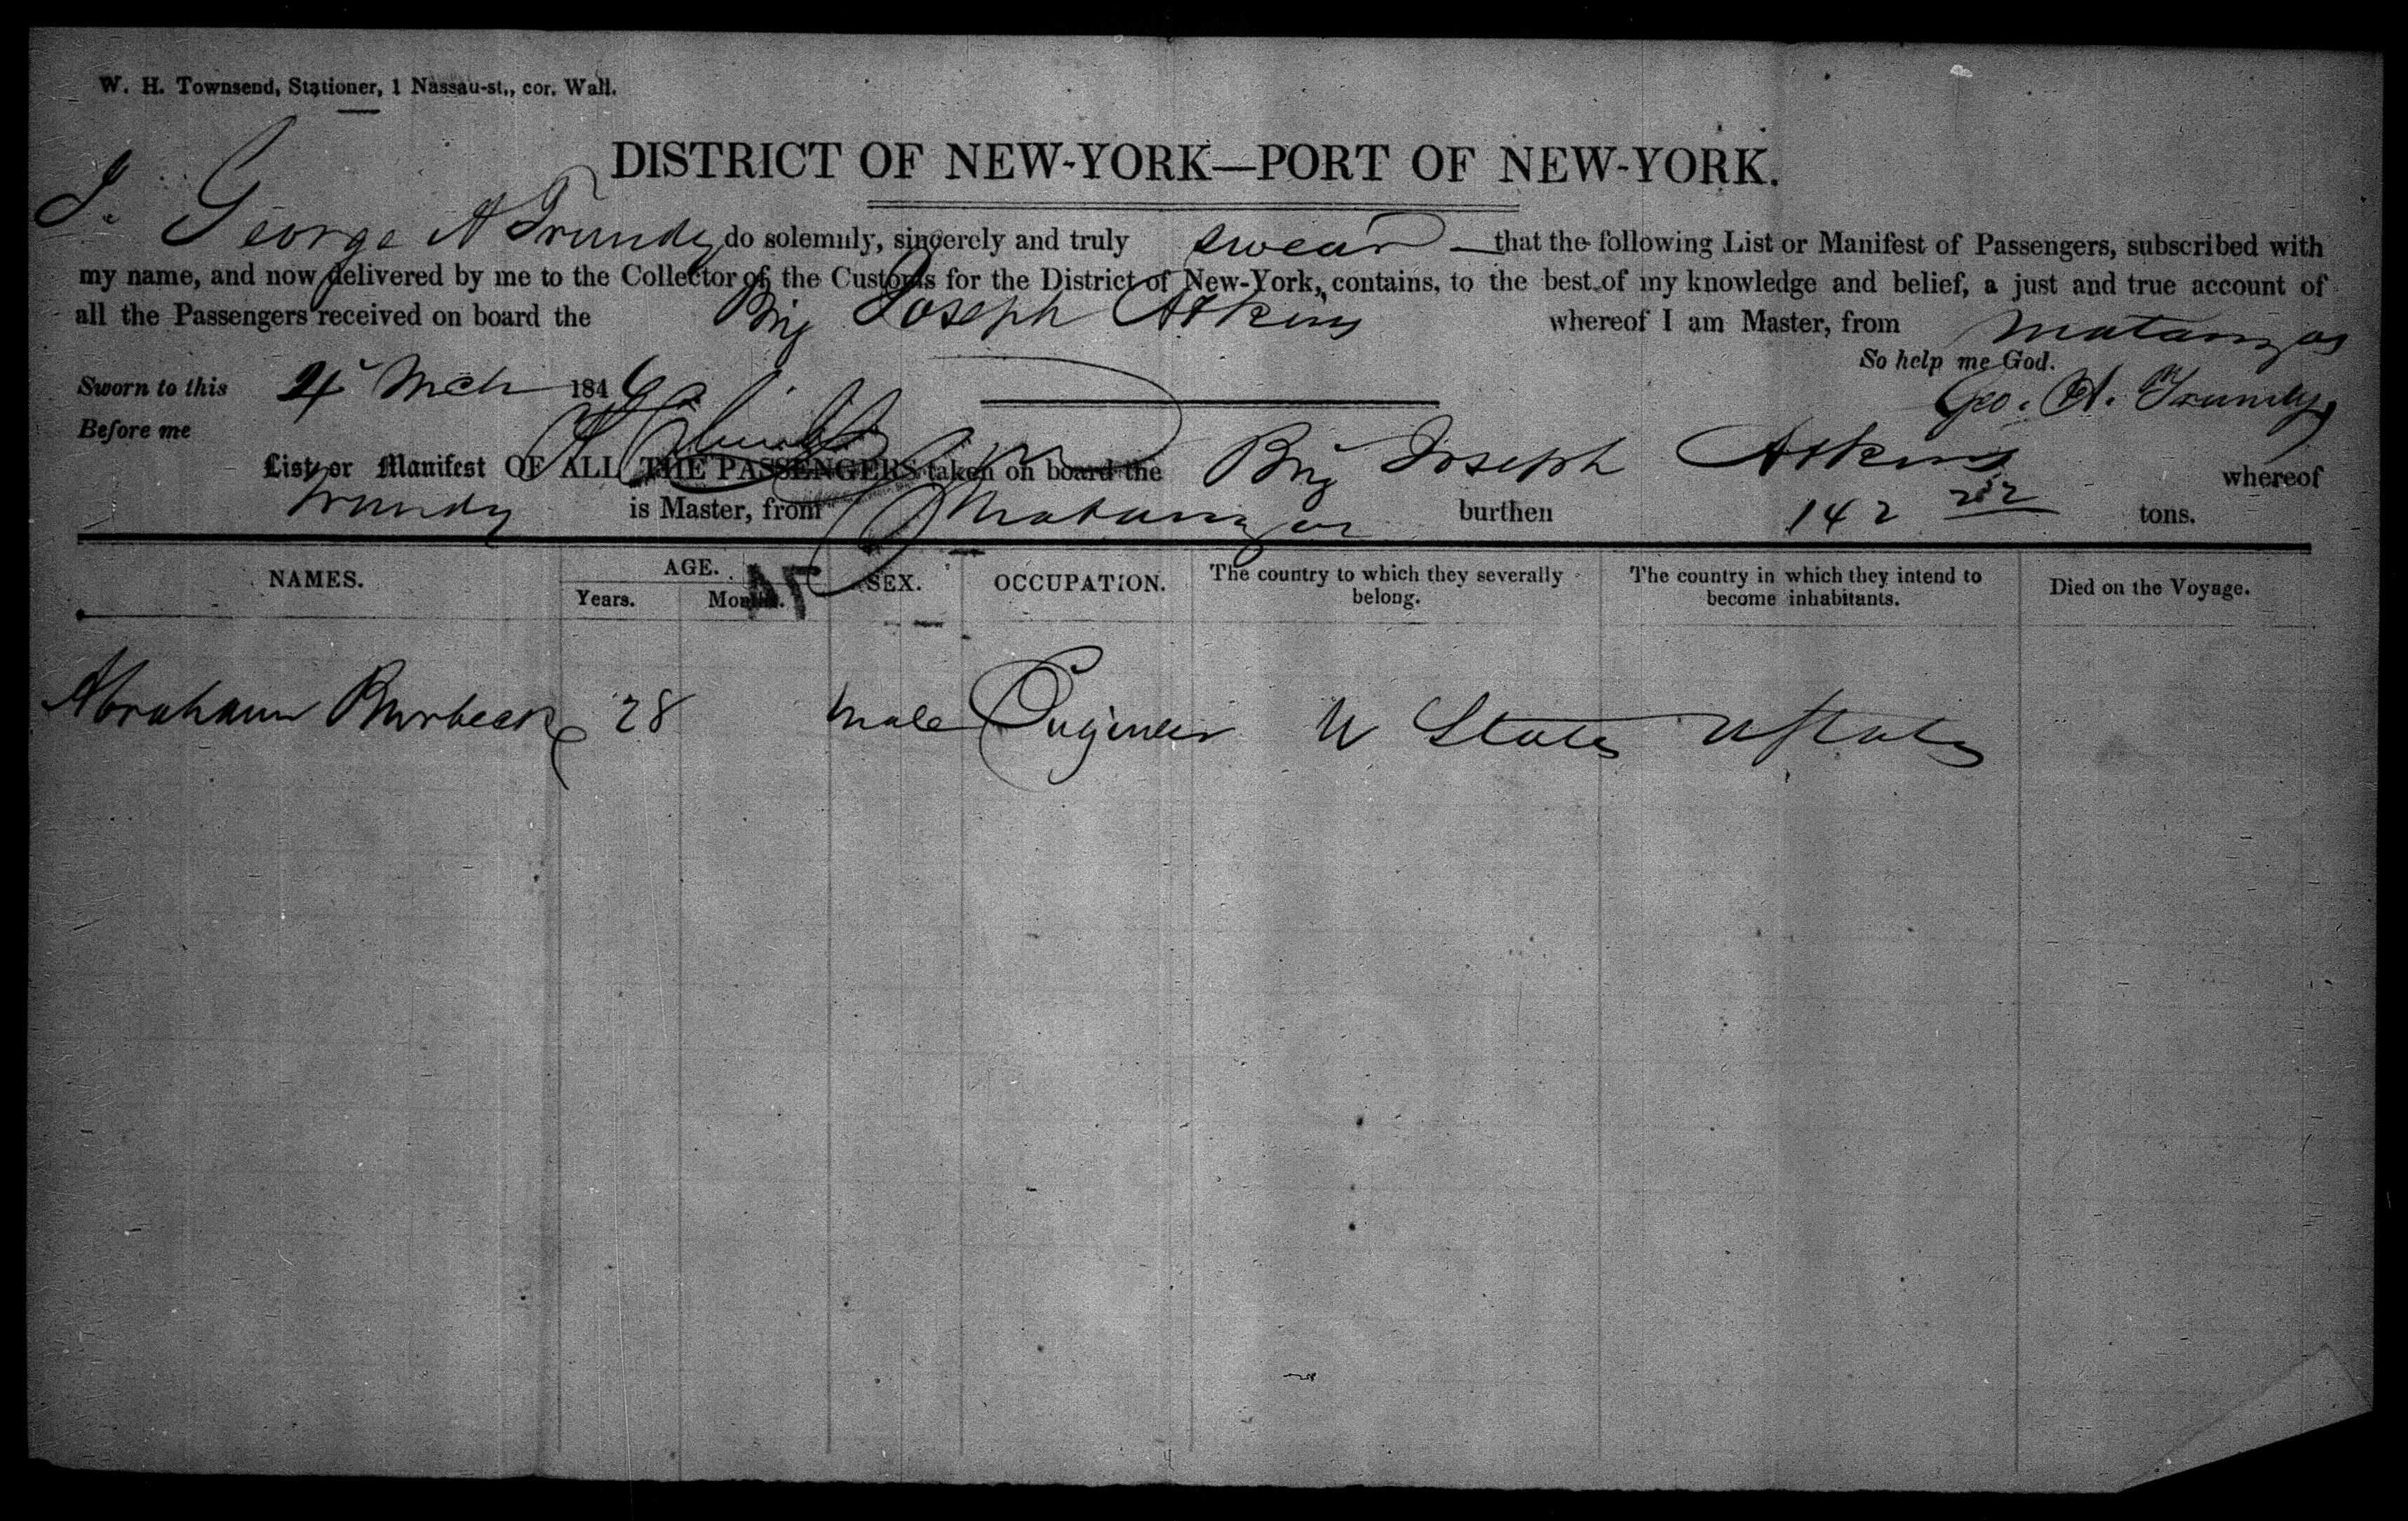 W. H. Townsend, Stationer, 1 Nassau-st., cor. Wall.
DISTRICT OF NEW-YORK—PORT OF NEW-YORK.
I George A Trundy do solemnly, sincerely and truly swear that the following List or Manifest of Passengers, subscribed with
my name, and now delivered by me to the Collector of the Customs for the District of New-York, contains, to the best of my knowledge and belief, a just and true account of
all the Passengers received on board the Brig Joseph Atkins whereof I am Master, from Matanzas
So help me God.
Sworn to this 4 Mch 1846 Geo. A. Trundy
Before me
List or Manifest OF ALL THE PASSENGERS taken on board the Brig Joseph Atkins whereof
Trundy is Master, from Matanzas burthen 142 tons.
NAMES. AGE. SEX. OCCUPATION. The country to which they severally belong. The country in which they intend to become inhabitants. Died on the Voyage.
Years. Months.
Abraham Burbeck 28 Male Engineer U States U States